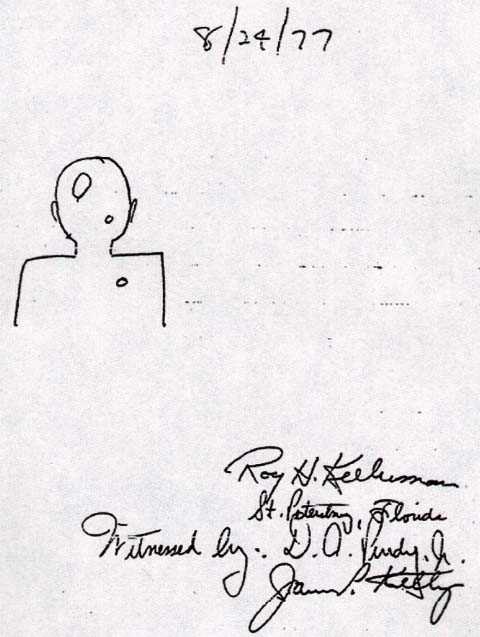 8/24/77
Roy H. Kellerman
St. Petersburg, Florida
Witnessed by: D. A. Purdy, Jr.
James P. Kelly